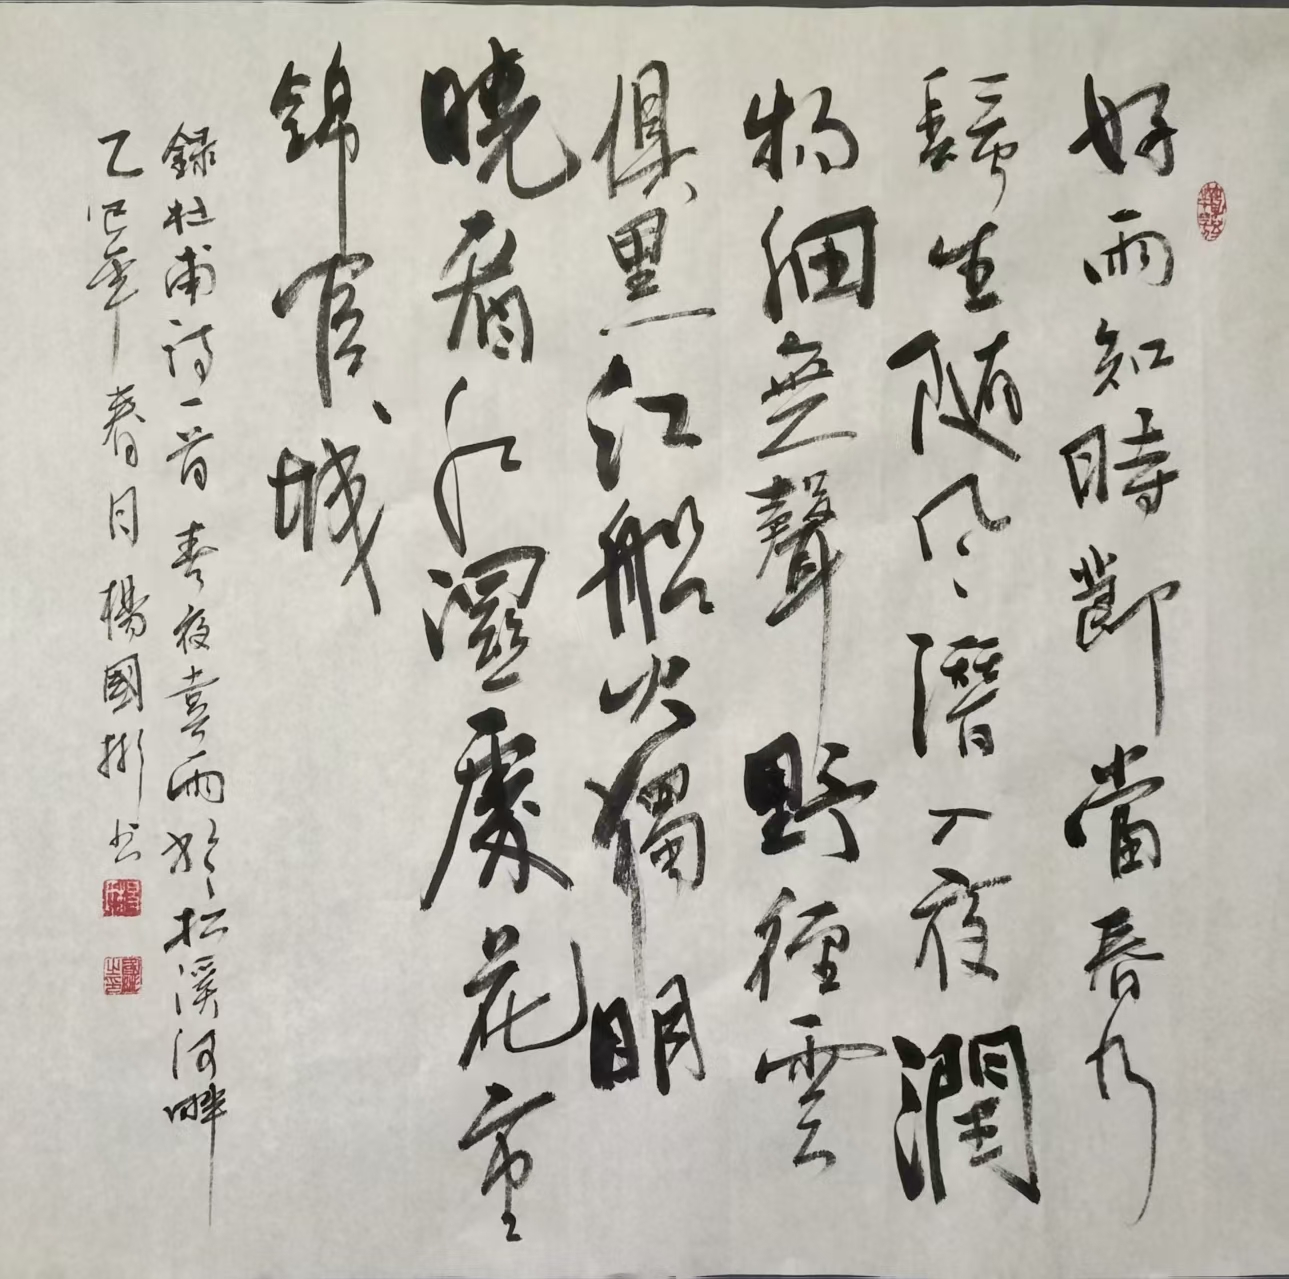 好雨知時節當春乃
發生随風潛入夜潤
物細無聲野徑雲
俱黑江船火獨明
曉看紅濕處花重
錦官城
録杜甫詩一首春夜喜雨於松溪河畔
乙巳年春月楊國彬书